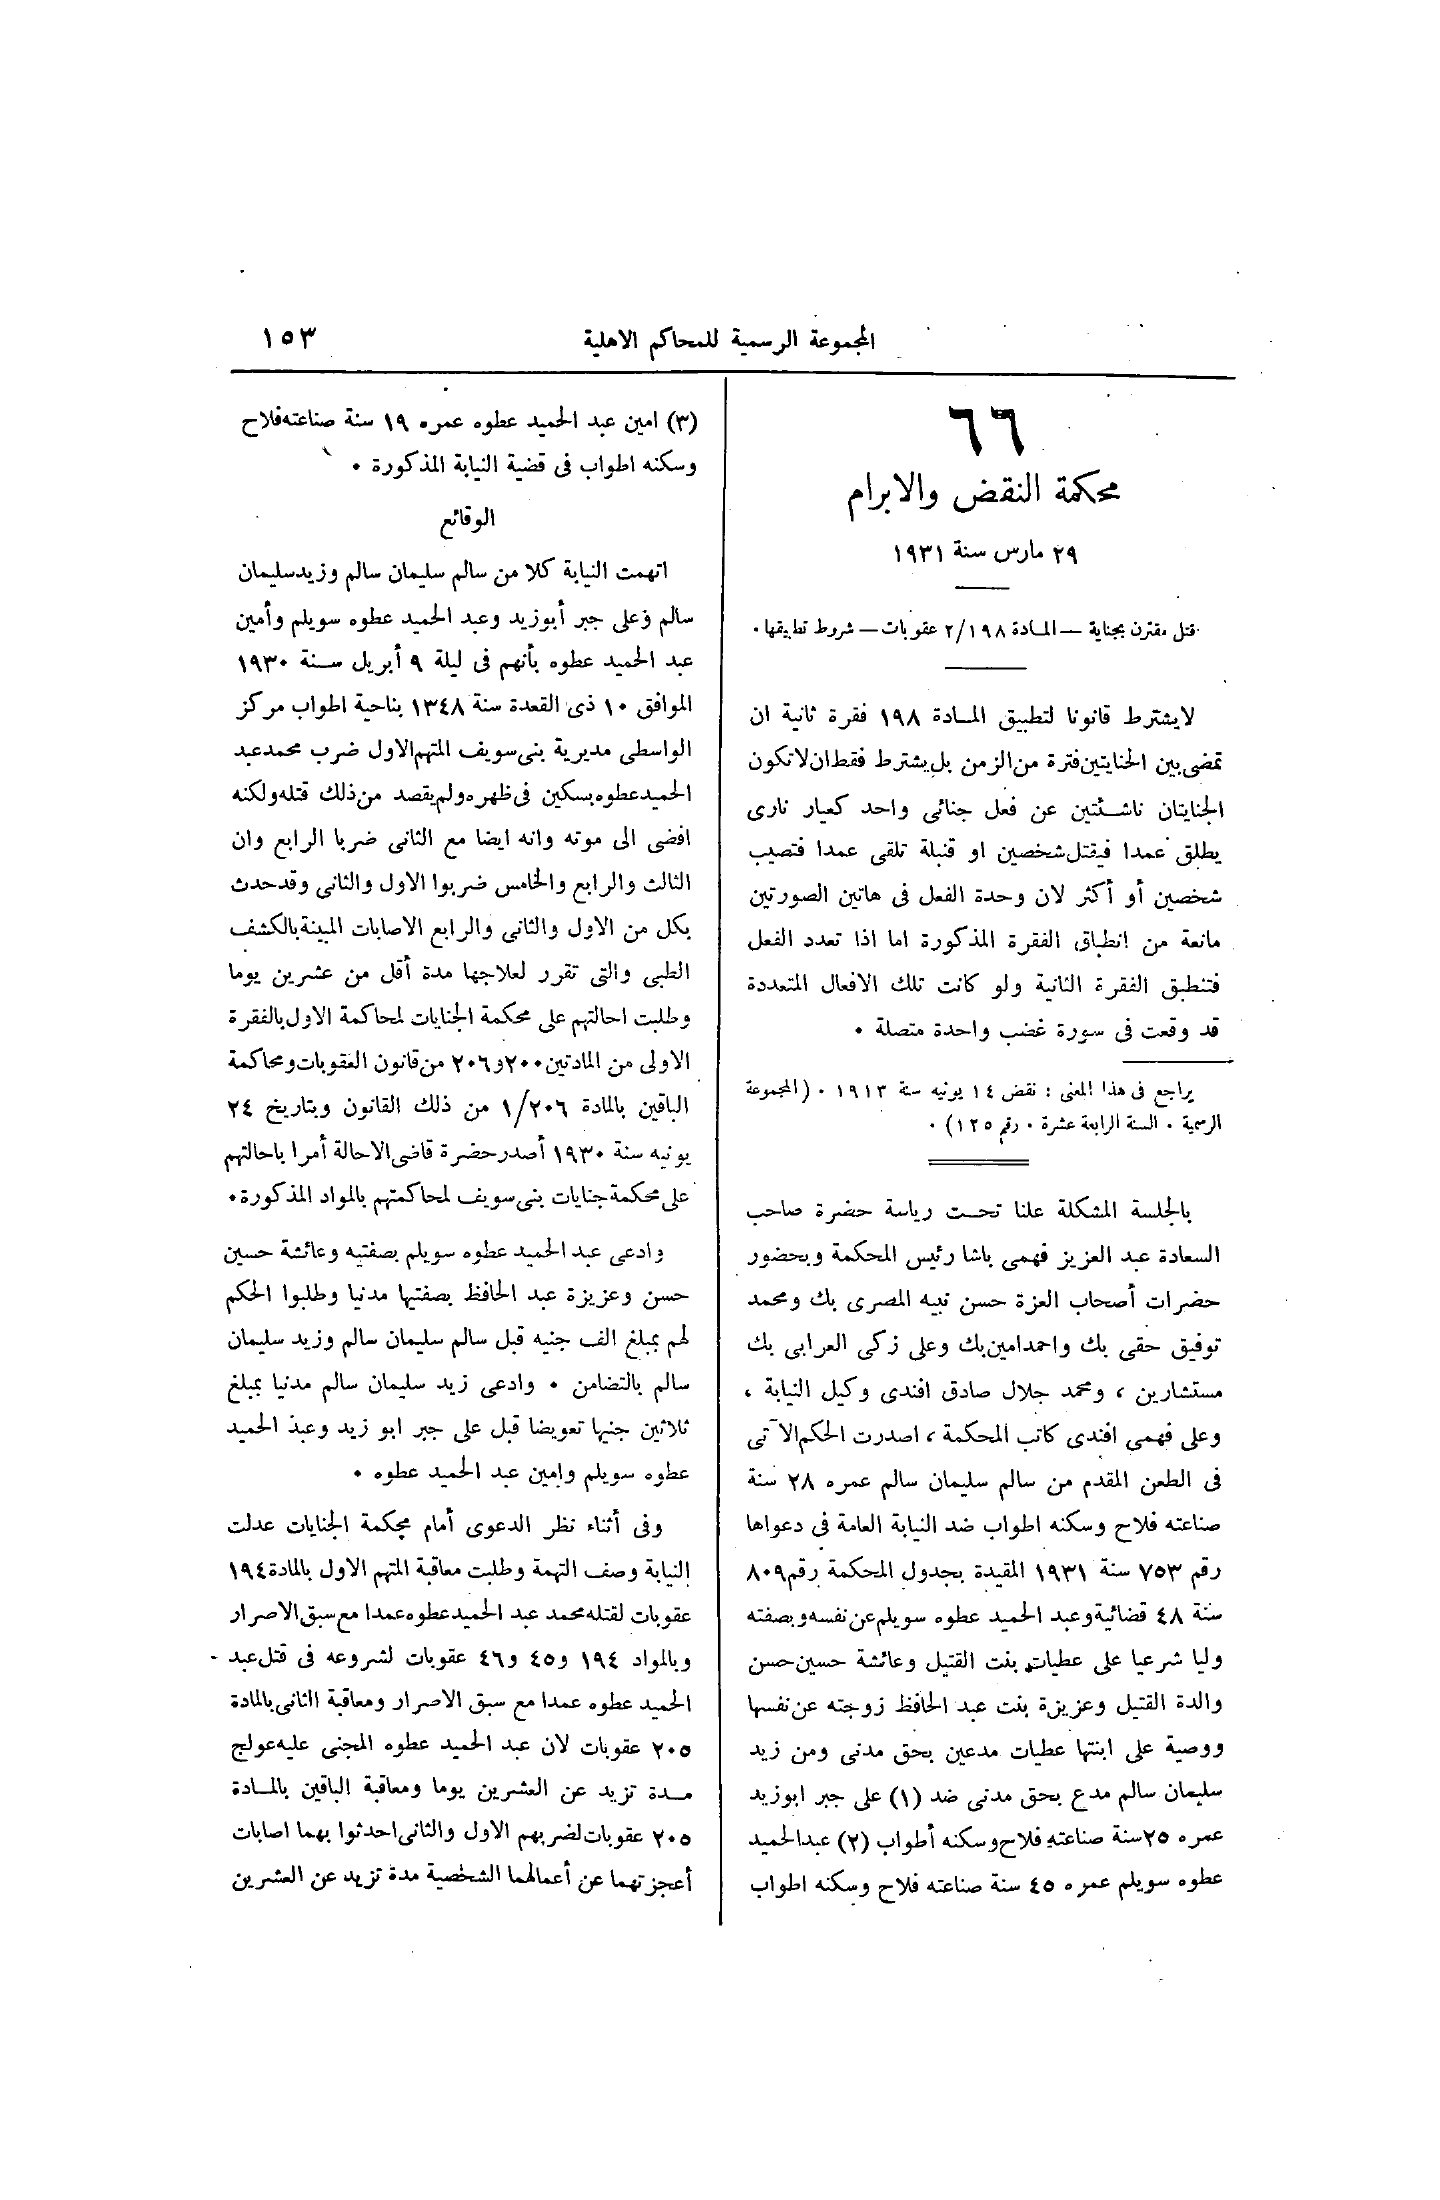 المجموعة الرسمية للمحاكم الاهلية
١٥٣
٦٦
محكمة النقض والابرام
٢٩ مارس سنة ١٩٣١
قتل مقترن بجناية — المادة ٢/١٩٨ عقوبات — شروط تطبيقها .
لا يشترط قانونا لتطبيق المادة ١٩٨ فقرة ثانية ان
تمضى بين الجنايتين فترة من الزمن بل يشترط فقط ان لا تكون
الجنايتان ناشئتين عن فعل جنائى واحد كعيار نارى
يطلق عمدا فيقتل شخصين او قنبلة تلقى عمدا فتصيب
شخصين أو أكثر لان وحدة الفعل فى هاتين الصورتين
مانعة من انطباق الفقرة المذكورة اما اذا تعدد الفعل
فتنطبق الفقرة الثانية ولو كانت تلك الافعال المتعددة
قد وقعت فى سورة غضب واحدة متصلة .
يراجع فى هذا المعنى : نقض ١٤ يونيه سنة ١٩١٣ . (المجموعة
الرسمية . السنة الرابعة عشرة . رقم ١٢٥) .
بالجلسة المشكلة علنا تحت رياسة حضرة صاحب
السعادة عبد العزيز فهمى باشا رئيس المحكمة وبحضور
حضرات أصحاب العزة حسن نبيه المصرى بك ومحمد
توفيق حقى بك واحمد امين بك وعلى زكى العرابى بك
مستشارين ، ومحمد جلال صادق افندى وكيل النيابة ،
وعلى فهمى افندى كاتب المحكمة ، اصدرت الحكم الآتى
فى الطعن المقدم من سالم سليمان سالم عمره ٢٨ سنة
صناعته فلاح وسكنه اطواب ضد النيابة العامة فى دعواها
رقم ٧٥٣ سنة ١٩٣١ المقيدة بجدول المحكمة رقم ٨٠٩
سنة ٤٨ قضائية وعبد الحميد عطوه سويلم عن نفسه وبصفته
وليا شرعيا على عطيات بنت القتيل وعائشة حسين حسن
والدة القتيل وعزيزة بنت عبد الحافظ زوجته عن نفسها
ووصية على ابنتها عطيات مدعين بحق مدنى ومن زيد
سليمان سالم مدع بحق مدنى ضد (١) على جبر ابو زيد
عمره ٢٥ سنة صناعته فلاح وسكنه أطواب (٢) عبد الحميد
عطوه سويلم عمره ٤٥ سنة صناعته فلاح وسكنه اطواب
(٣) امين عبد الحميد عطوه عمره ١٩ سنة صناعته فلاح
وسكنه اطواب فى قضية النيابة المذكورة .
الوقائع
اتهمت النيابة كلا من سالم سليمان سالم وزيد سليمان
سالم وعلى جبر أبو زيد وعبد الحميد عطوه سويلم وأمين
عبد الحميد عطوه بأنهم فى ليلة ٩ أبريل سنة ١٩٣٠
الموافق ١٠ ذى القعدة سنة ١٣٤٨ بناحية اطواب مركز
الواسطى مديرية بنى سويف المتهم الاول ضرب محمد عبد
الحميد عطوه بسكين فى ظهره ولم يقصد من ذلك قتله ولكنه
افضى الى موته وانه ايضا مع الثانى ضربا الرابع وان
الثالث والرابع والخامس ضربوا الاول والثانى وقد حدث
بكل من الاول والثانى والرابع الاصابات المبينة بالكشف
الطبى والتى تقرر لعلاجها مدة أقل من عشرين يوما
وطلبت احالتهم على محكمة الجنايات لمحاكمة الاول بالفقرة
الاولى من المادتين ٢٠٠ و ٢٠٦ من قانون العقوبات ومحاكمة
الباقين بالمادة ١/٢٠٦ من ذلك القانون وبتاريخ ٢٤
يونيه سنة ١٩٣٠ أصدر حضرة قاضى الاحالة أمرا باحالتهم
على محكمة جنايات بنى سويف لمحاكمتهم بالمواد المذكورة .
وادعى عبد الحميد عطوه سويلم بصفتيه وعائشة حسين
حسن وعزيزة عبد الحافظ بصفتيها مدنيا وطلبوا الحكم
لهم بمبلغ الف جنيه قبل سالم سليمان سالم وزيد سليمان
سالم بالتضامن . وادعى زيد سليمان سالم مدنيا بمبلغ
ثلاثين جنيها تعويضا قبل على جبر ابو زيد وعبد الحميد
عطوه سويلم وامين عبد الحميد عطوه .
وفى أثناء نظر الدعوى أمام محكمة الجنايات عدلت
النيابة وصف التهمة وطلبت معاقبة المتهم الاول بالمادة ١٩٤
عقوبات لقتله محمد عبد الحميد عطوه عمدا مع سبق الاصرار
وبالمواد ١٩٤ و٤٥ و٤٦ عقوبات لشروعه فى قتل عبد
الحميد عطوه عمدا مع سبق الاصرار ومعاقبة الثانى بالمادة
٢٠٥ عقوبات لان عبد الحميد عطوه المجنى عليه عولج
مدة تزيد عن العشرين يوما ومعاقبة الباقين بالمادة
٢٠٥ عقوبات لضربهم الاول والثانى احدثوا بهما اصابات
أعجزتهما عن أعمالهما الشخصية مدة تزيد عن العشرين